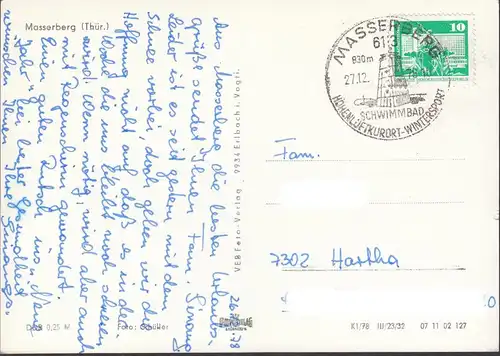 Masserberg (Thür.)
Aus Masserberg die besten Urlaubs-
grüße sendet Ihnen Fam. Simon
Leider ist es seit gestern mit dem
Schnee vorbei, doch geben wir die
Hoffnung nicht auf daß es in die
Woche die uns bleibt noch schneien
wird. Wenn nötig, wird aber auch
mit Regenschirm gewandert.
Einen guten Rutsch ins "Neue
Jahr" bei bester Gesundheit
wünschen Ihnen Ihre
Simons.
26.12.78
DDR 0,25 M
Foto: Schüller
VEB Foto-Verlag 9934 Erlbach i. Vogtl.
MASSERBERG
830 m
27.12.
SCHWIMMBAD
HÖHENLUFTKURORT-WINTERSPORT
10
Fam.
7302 Hartha
K1/78 III/23/32 07 11 02 127